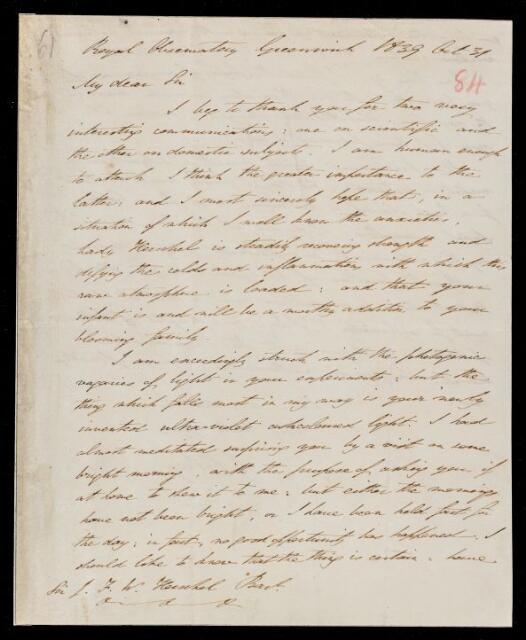 61
Royal Observatory Greenwich 1839 Oct 31
84
My dear Sir
I beg to thank you for two very
interesting communications: one on scientific and
the other on domestic subjects. I am human enough
to attach I think the greater importance to the
latter; and I most sincerely hope that, in a
situation of which I well know the anxieties,
Lady Herschel is steadily recovering strength and
defying the colds and inflammations with which this
raw atmosphere is loaded: and that your
infant is and will be a worthy addition to your
blooming family.
I am exceedingly struck with the photogenic
vagaries of light in your experiments: but the
thing which falls most in my way is your newly
invented ultra-violet uncoloured light. I had
almost meditated surprising you by a visit on some
bright morning, with the purpose of asking you if
at home to shew it to me: but either the mornings
have not been bright, or I have been held fast for
the day: in fact, no good opportunity has happened. I
should like to know that the thing is certain: have
Sir J. F. W. Herschel Bart.